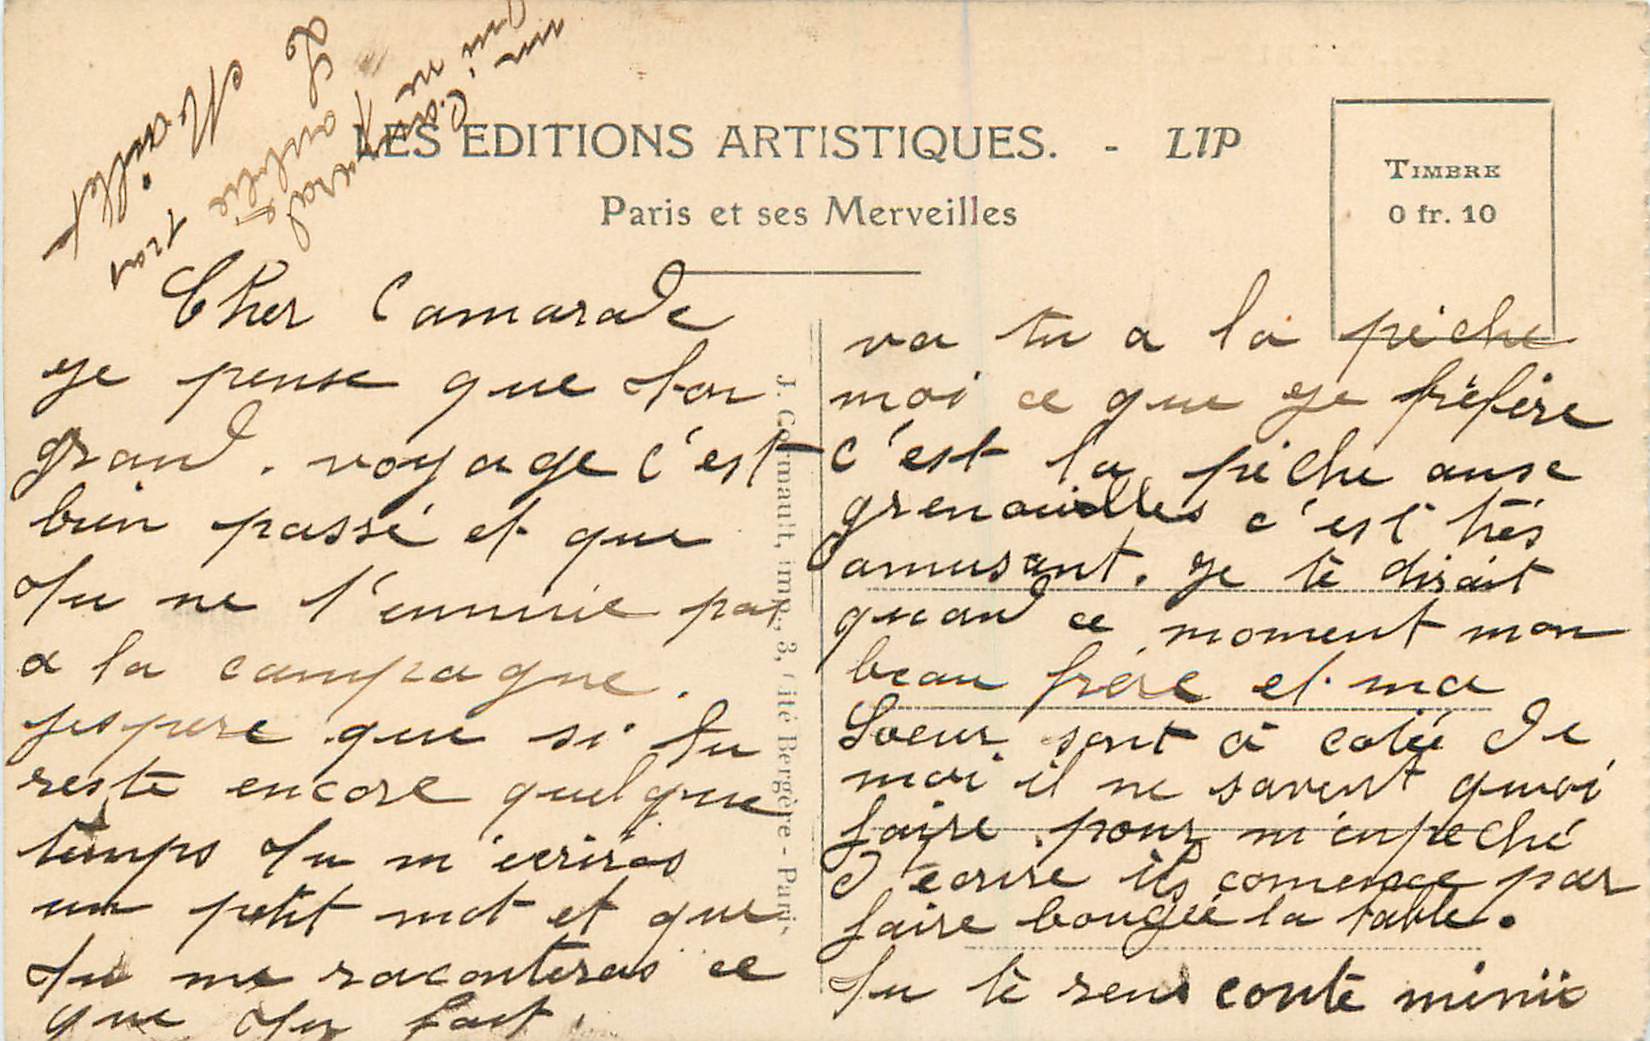 LES EDITIONS ARTISTIQUES. - LIP
Paris et ses Merveilles
TIMBRE
0 fr. 10
Cher Camarade
je pense que ton
grand. voyage c'est
bien passé et que
tu ne t'ennuie pas
a la campagne.
jespere que si tu
reste encore quelque
temps tu m'ecriras
un petit mot et que
tu me raconteras ce
que tu fait.
J. Cormault, imp., 3, Cité Bergère - Paris
va tu a la pêche
moi ce que je préfère
c'est la pêche ause
grenouilles c'est très
amusant. je te disait
quand ce moment mon
beau frère et ma
Soeur sont à coté de
moi il ne savent quoi
faire pour m'enpeché
d'ecrire ils comence par
faire bougée la table.
tu te rend conte
un
qui ne
Camarade
Loublie
pas
Maillet